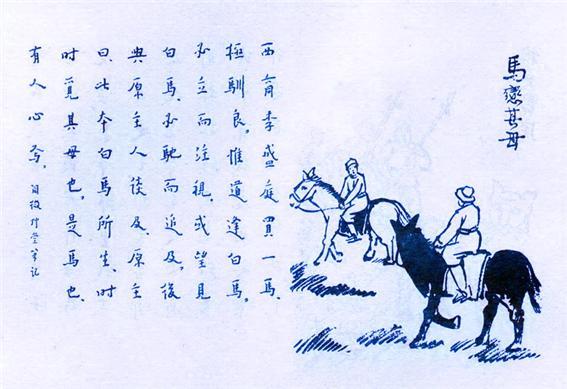 馬戀其母
西商李盛庭買一馬、
極馴良,惟道逢白馬,
必立而注視,或望見
白馬、必馳而追及,後
與原主人談及、原主
曰、此本白馬所生、时
时覓其母也,是馬也、
有人心焉,
阅微草堂筆記